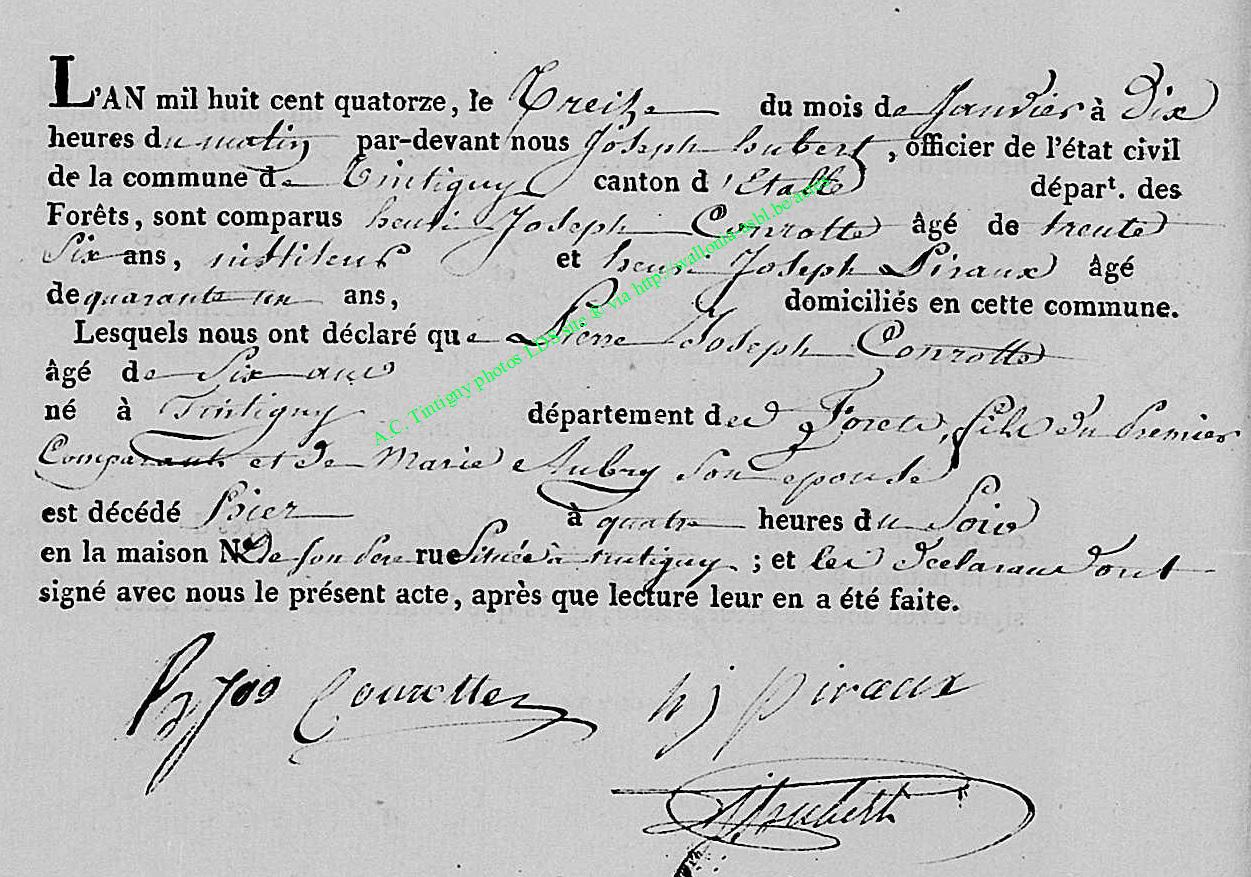 L'AN mil huit cent quatorze, le Treize du mois de Janvier à Dix
heures du matin par-devant nous Joseph hubert, officier de l'état civil
de la commune de Tintigny canton d'Etalle dépar<sup>t</sup>. des
Forêts, sont comparus henri Joseph Conrotte âgé de trente
Six ans, instituteur et henri Joseph Piraux âgé
de quarante un ans, domiciliés en cette commune.
Lesquels nous ont déclaré que Pierre Joseph Conrotte
âgé de Six ans
né à Tintigny département des Forets, fils du Premier
Comparant et de Marie Aubry Son epouse
est décédé hier à quatre heures du Soir
en la maison N° De son Pere rue Située à tintigny ; et les Declarans ont
signé avec nous le présent acte, après que lecture leur en a été faite.
Conrotte h j piraux
hubert
A.C. Tintigny photos LDS site & via http://wallonia-asbl.be/